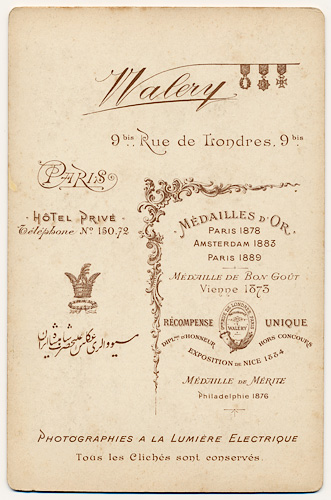 Walery
9 bis. Rue de Londres. 9 bis
PARIS
HÔTEL PRIVÉ
Téléphone Nº 130.72
MÉDAILLES D'OR
PARIS 1878
AMSTERDAM 1883
PARIS 1889
MÉDAILLE DE BON GOÛT
Vienne 1873
RÉCOMPENSE UNIQUE
DIPL. D'HONNEUR HORS CONCOURS
WALERY
EXPOSITION DE NICE 1884
MÉDAILLE DE MÉRITE
Philadelphie 1876
مسیو والری عکاس
PHOTOGRAPHIES A LA LUMIÈRE ELECTRIQUE
Tous les Clichés sont conservés.